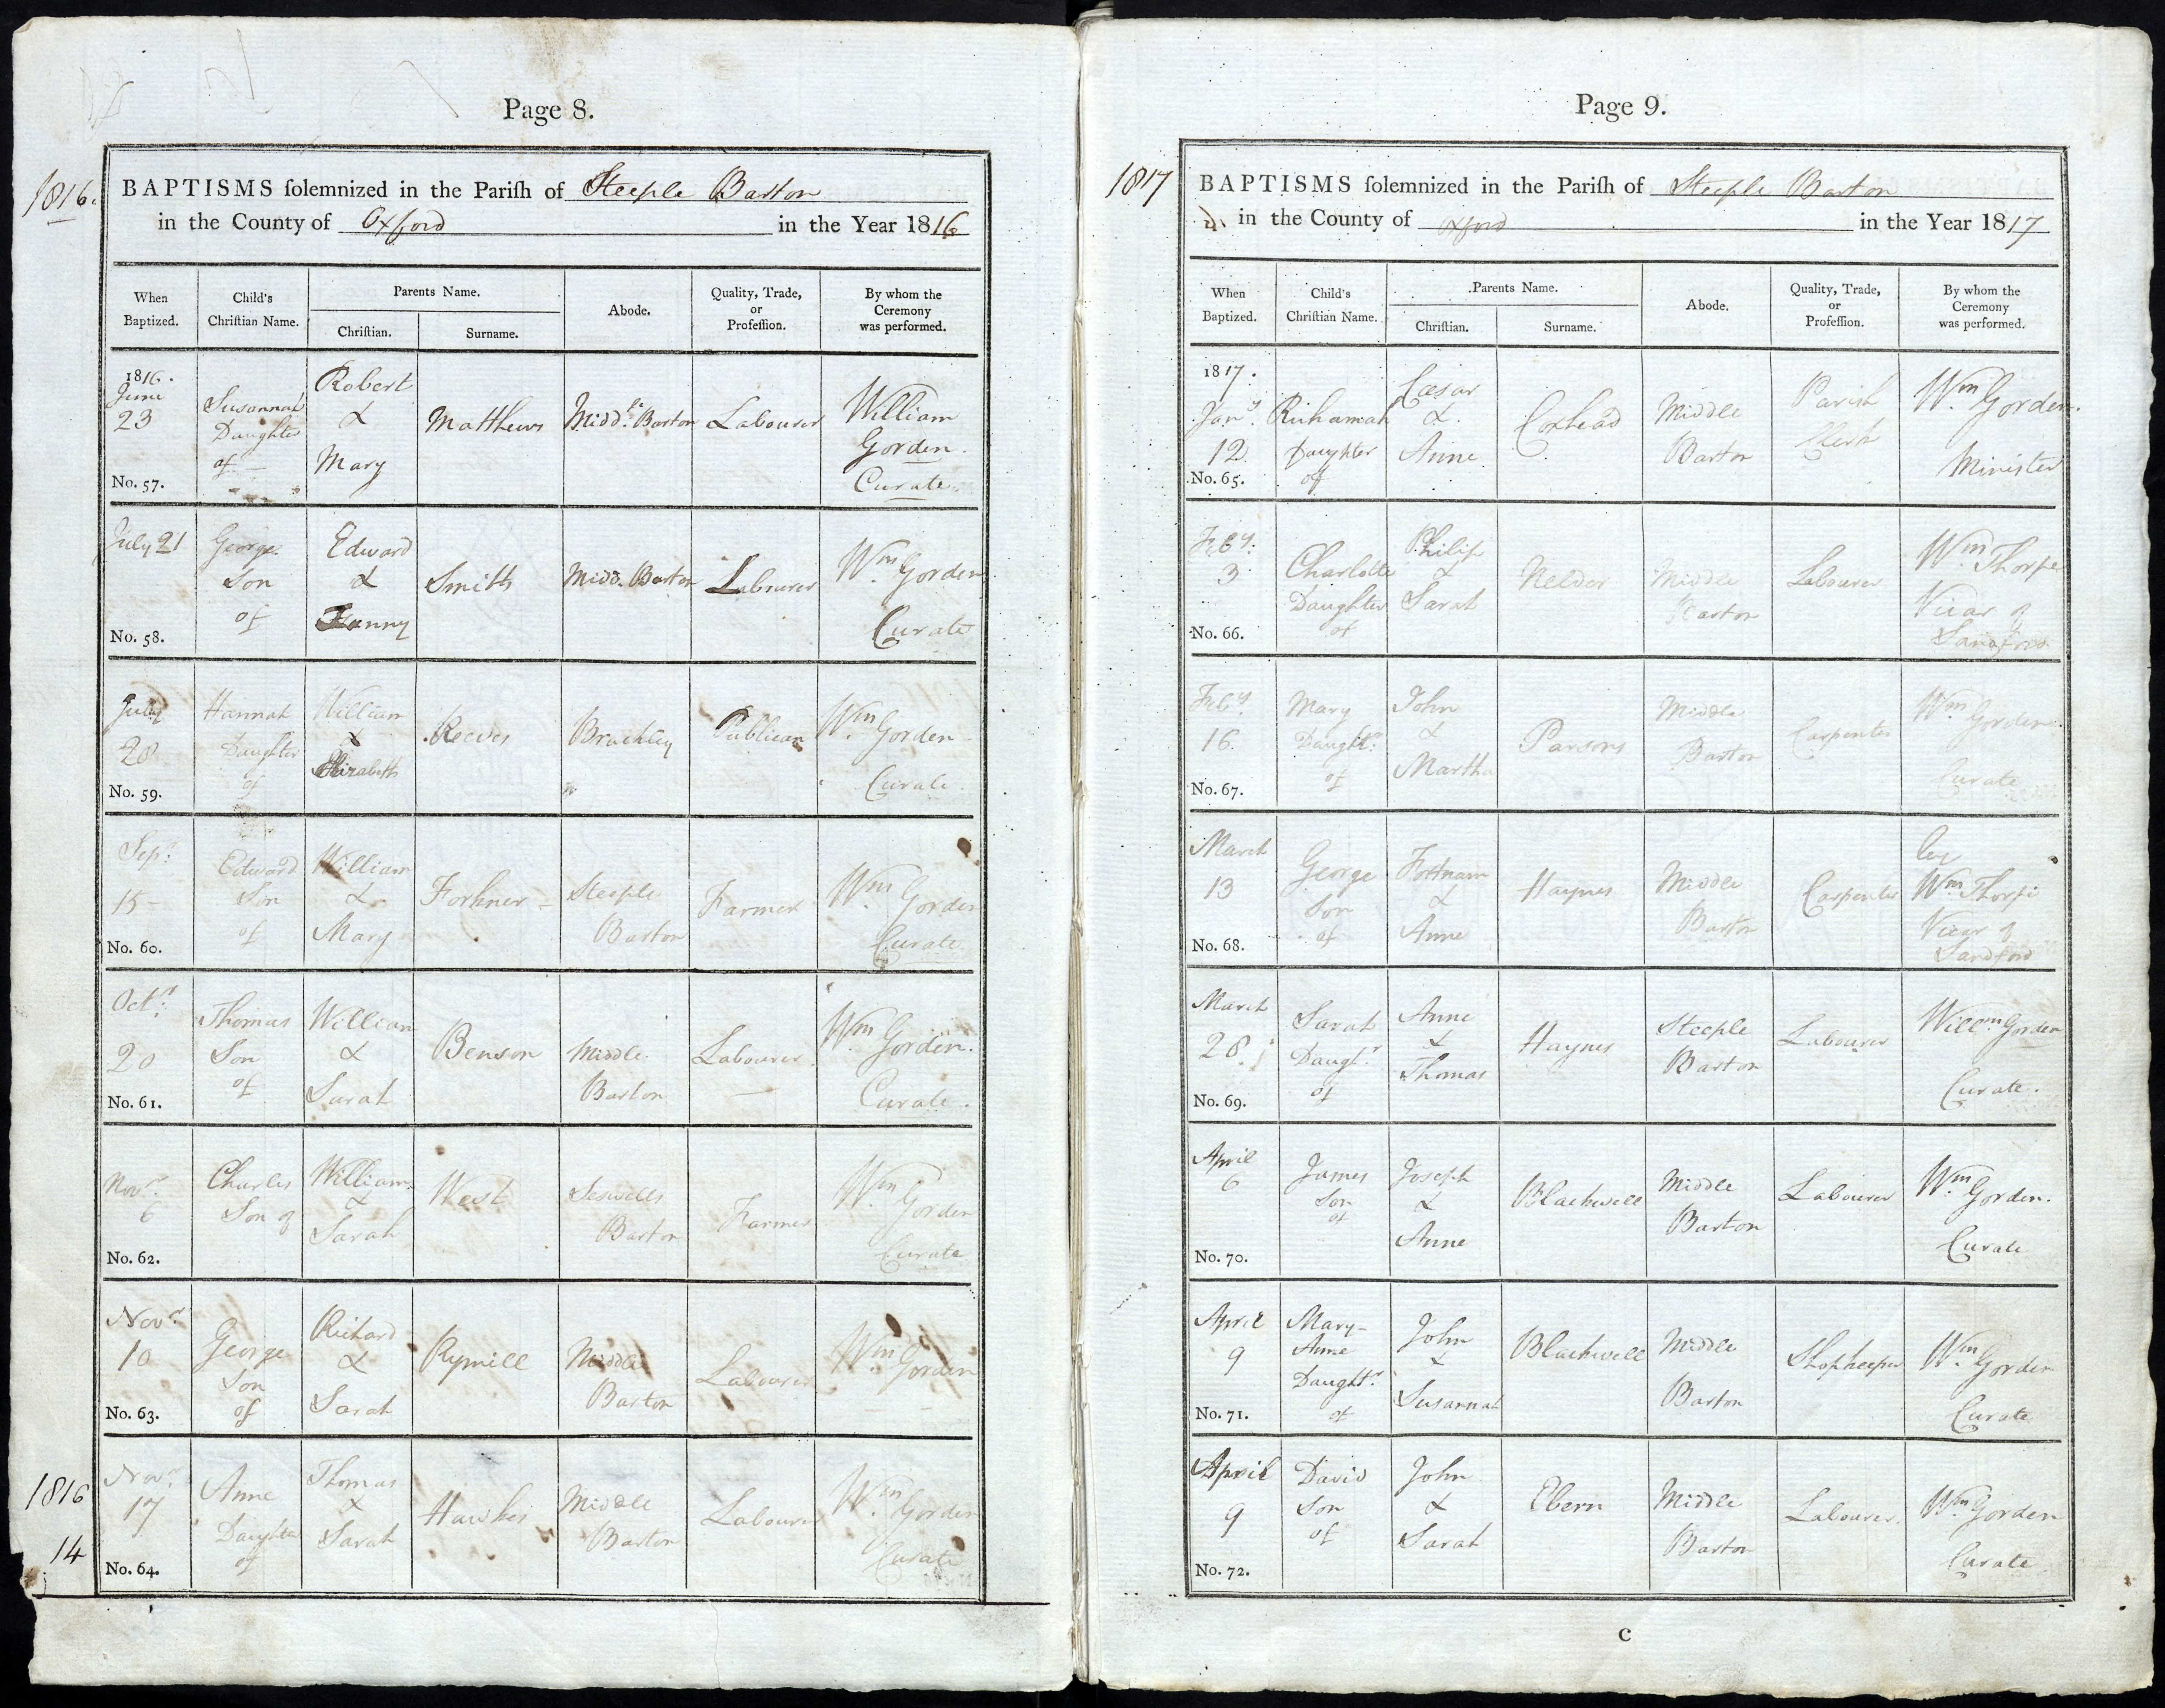 Page 8.
1816.
BAPTISMS ſolemnized in the Pariſh of Steeple Barton
in the County of Oxford in the Year 1816
When Baptized.
Child's Chriſtian Name.
Parents Name.
Chriſtian.
Surname.
Abode.
Quality, Trade, or Profeſſion.
By whom the Ceremony was performed.
1816.
June
23
No. 57.
Susannah
Daughter
of
Robert
&
Mary
Matthews
Midd.le Barton
Labourer
William
Gorden.
Curate.
July 21
No. 58.
George
Son
of
Edward
&
Fanny
Smith
Midd. Barton
Labourer
Wm. Gorden
Curate
July
28
No. 59.
Hannah
Daughter
of
William
&
Elizabeth
Reeves
Brackley
Publican
Wm. Gorden
Curate.
Sepr.
15
No. 60.
Edward
Son
of
William
&
Mary
Forkner
Steeple
Barton
Farmer
Wm. Gorden
Curate
Octr.
20
No. 61.
Thomas
Son
of
William
&
Sarah
Benson
Middle
Barton
Labourer
Wm. Gorden.
Curate.
Novr.
6
No. 62.
Charles
Son of
William
&
Sarah
West
Seswells
Barton
Farmer
Wm. Gorden
Curate
Novr.
10
No. 63.
George
Son
of
Richard
&
Sarah
Rymill
Middle
Barton
Labourer
Wm. Gorden
1816
14
Novr.
17
No. 64.
Anne
Daughter
of
Thomas
&
Sarah
Hawkes
Middle
Barton
Labourer
Wm. Gorden
Curate
Page 9.
1817
BAPTISMS ſolemnized in the Pariſh of Steeple Barton
in the County of Oxford in the Year 1817
When Baptized.
Child's Chriſtian Name.
Parents Name.
Chriſtian.
Surname.
Abode.
Quality, Trade, or Profeſſion.
By whom the Ceremony was performed.
1817.
Jany.
12
No. 65.
Ruhamah
Daughter
of
Cæsar
&
Anne
Coxhead
Middle
Barton
Parish
Clerk
Wm. Gorden.
Minister
Feby.
3
No. 66.
Charlotte
Daughter
of
Philip
&
Sarah
Nelder
Middle
Barton
Labourer
Wm. Thorpe
Vicar of
Sandford
Feby.
16.
No. 67.
Mary
Daughtr.
of
John
&
Martha
Parsons
Middle
Barton
Carpenter
Wm. Gorden
Curate
March
13
No. 68.
George
Son
of
Fortnam
&
Anne
Haynes
Middle
Barton
Carpenter
by
Wm. Thorpe
Vicar of
Sandford
March
28.
No. 69.
Sarah
Daughtr.
of
Anne
&
Thomas
Haynes
Steeple
Barton
Labourer
Willm. Gorden
Curate.
April
6
No. 70.
James
Son
of
Joseph
&
Anne
Blackwell
Middle
Barton
Labourer
Wm. Gorden.
Curate
April
9
No. 71.
Mary-
Anne
Daughtr.
of
John
&
Susannah
Blackwell
Middle
Barton
Shopkeeper
Wm. Gorden
Curate
April
9
No. 72.
David
Son
of
John
&
Sarah
Ebern
Middle
Barton
Labourer.
Wm. Gorden
Curate
C